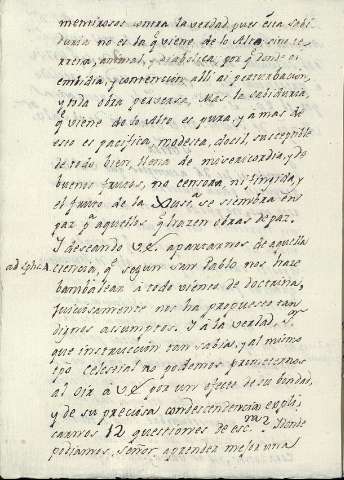 mentirosos contra la verdad, pues ésta sabi-
duria no es la q̃ viene de lo Alto, sino te-
rrena, animal, y diabolica, por q̃ donde ai
embidia, y contencion alli ai perturbacion,
y toda obra perversa. Mas la Sabiduria,
q̃ viene de lo Alto es pura, y à mas de
esto es pacifica, modesta, docil, susceptible
de todo bien, llena de misericordia, y de
buenos frutos, no censora, ni fingida, y
el fruto de la Xusta se siembra en
paz pª aquellos q̃ hazen obras de paz.
I deseando V.E. apartarnos de aquella
ad Eph. 4. ciencia, q̃ segun San Pablo nos haze
bambalear à todo viento de doctrina,
juiciosamente nos ha propuesto tan
dignos asumptos. I à la verdad, Sr
que instruccion tan sabia, y al mismo
tpo celestial no podemos prometernos
al oir à V.E. por un efecto de su bondad,
y de su preciosa condescendencia expli-
carnos 12 questiones de escra? Donde
podiamos, Señor, aprender mejor una